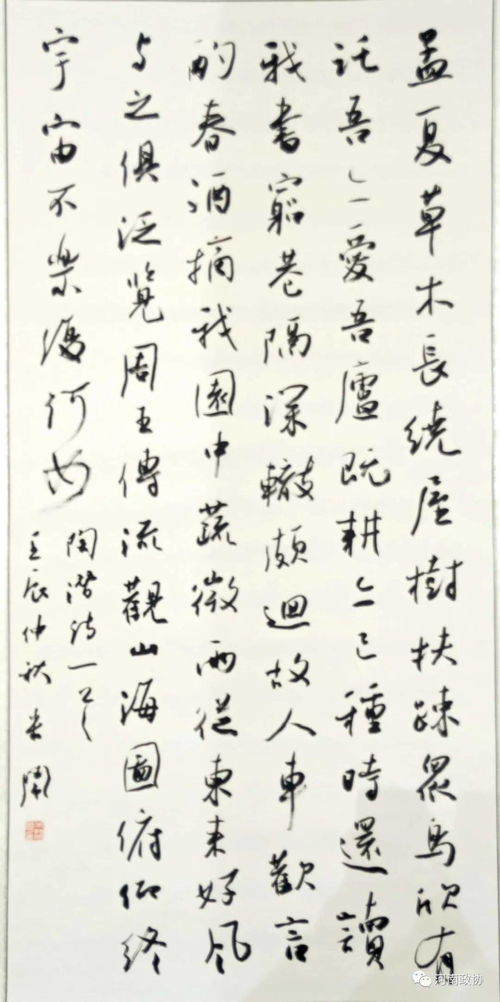 孟夏草木長繞屋樹扶疎眾鳥欣有
託吾亦愛吾廬既耕亦已種時還讀
我書窮巷隔深轍頗迴故人車歡言
酌春酒摘我園中蔬微雨從東来好风
与之俱泛覽周王傳流觀山海圖俯仰終
宇宙不樂復何如
陶潛诗一首
壬辰仲秋
河南政协